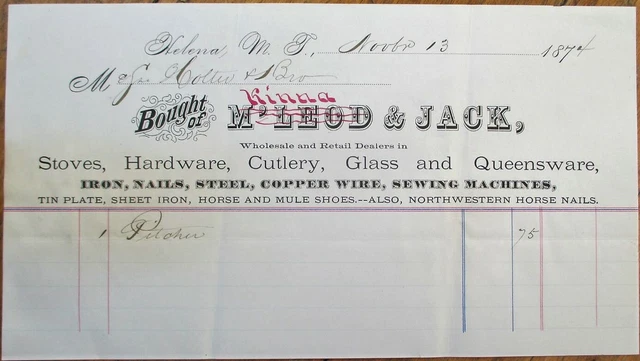 Helena, M. T., Novbr 13 1874
Messrs Holter & Bro
Bought of Kinna M'LEOD & JACK,
Wholesale and Retail Dealers in
Stoves, Hardware, Cutlery, Glass and Queensware,
IRON, NAILS, STEEL, COPPER WIRE, SEWING MACHINES,
TIN PLATE, SHEET IRON, HORSE AND MULE SHOES.--ALSO, NORTHWESTERN HORSE NAILS.
1 Pitcher 75